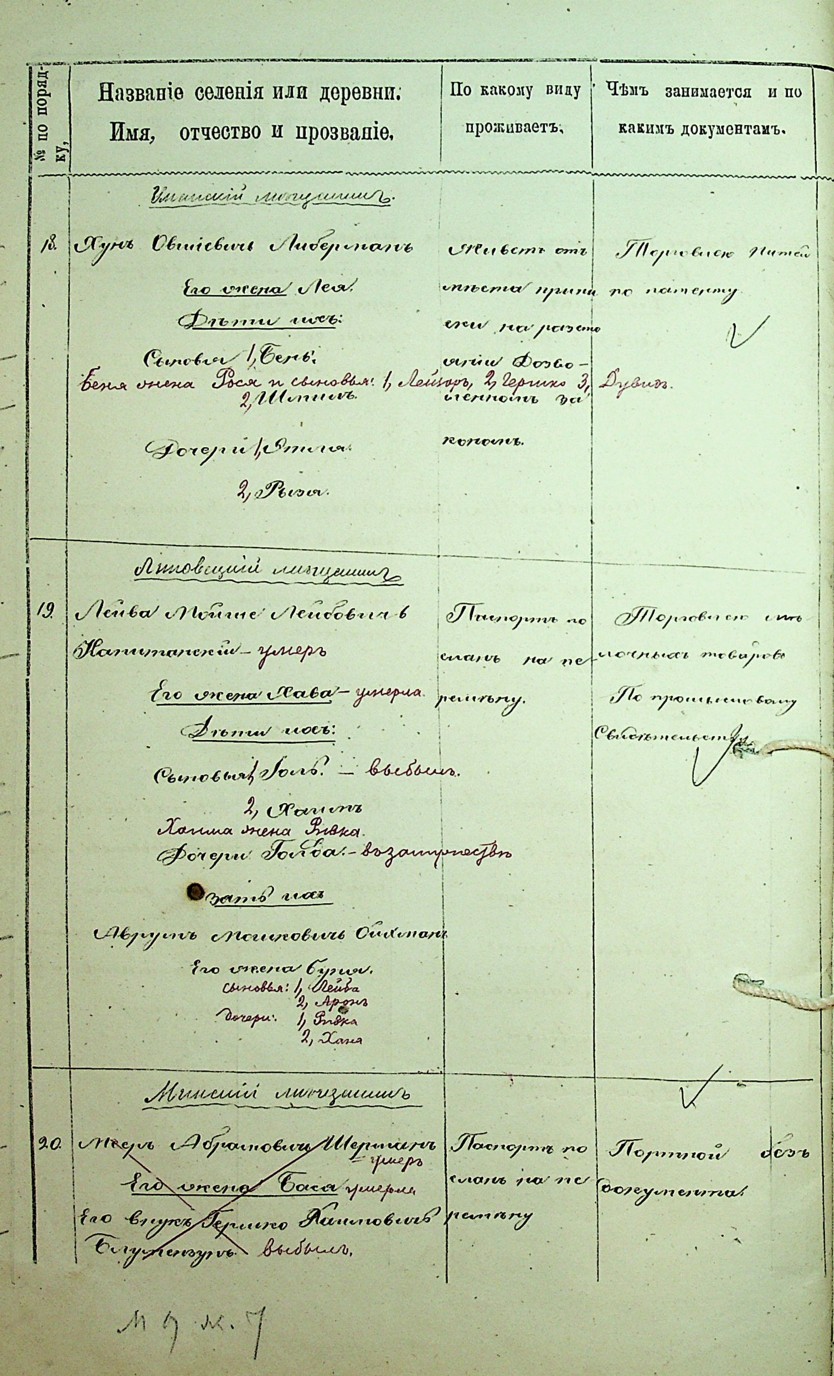 № по порядку,
Названіе селенія или деревни.
Имя, отчество и прозваніе.
По какому виду
проживаетъ.
Чѣмъ занимается и по
какимъ документамъ.
мѣщанинъ.
18.
Хунъ Овшіевичъ Либерманъ
Его жена Лея.
Дѣти ихъ:
Сыновья 1, Бень.
Беня жена Рося и сыновья: 1, Лейзоръ, 2, Гершко 3, Дувидъ.
2, Шлиомъ.
Дочери 1, Этля.
2, Рыза.
Живетъ отъ
мѣста припи
ски на разсто
яніи дозво-
ленномъ за
кономъ.
Торговлею питей
по патенту
Липовецкій мѣщанинъ
19.
Лейба Мойше Лейбовичъ
Капитанскій – умеръ
Его жена Хава – умерла.
Дѣти ихъ:
Сыновья 1, Голь. – выбылъ.
2, Хаимъ
Хаима жена Ривка.
Дочери Голда. – въ замужествѣ
зять ихъ
Аврумъ Мошковичъ Ойхманъ
Его жена Суня.
сыновья: 1, Лейба
2, Аронъ
дочери: 1, Ривка
2, Хана
Паспортъ по
сланъ на пе-
ремѣну.
Торговлею ме
лочныхъ товаровъ
По промысловому
Свидѣтельству
Минскій мѣщанинъ
20.
Абрамовичъ Шерманъ
– умеръ
Его жена Бася умерла
Его внукъ Гершко Хаимовичъ
выбылъ.
Паспортъ по
сланъ на пе
ремѣну
Портной безъ
документа.
М 9 ж. 7